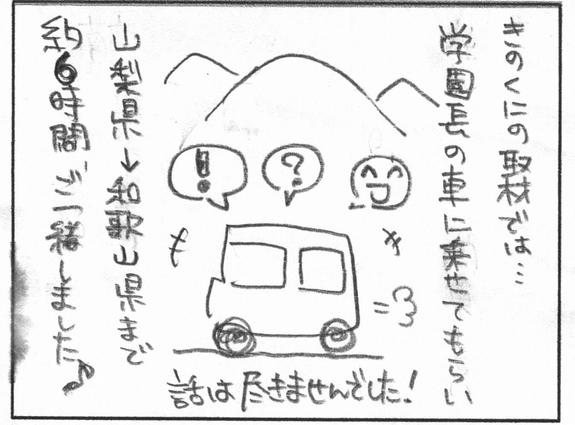 きのくにの取材では…
学園長の車に乗せてもらい
!
?
山梨県→和歌山県まで
約6時間、ご一緒しました♪
話は尽きませんでした!